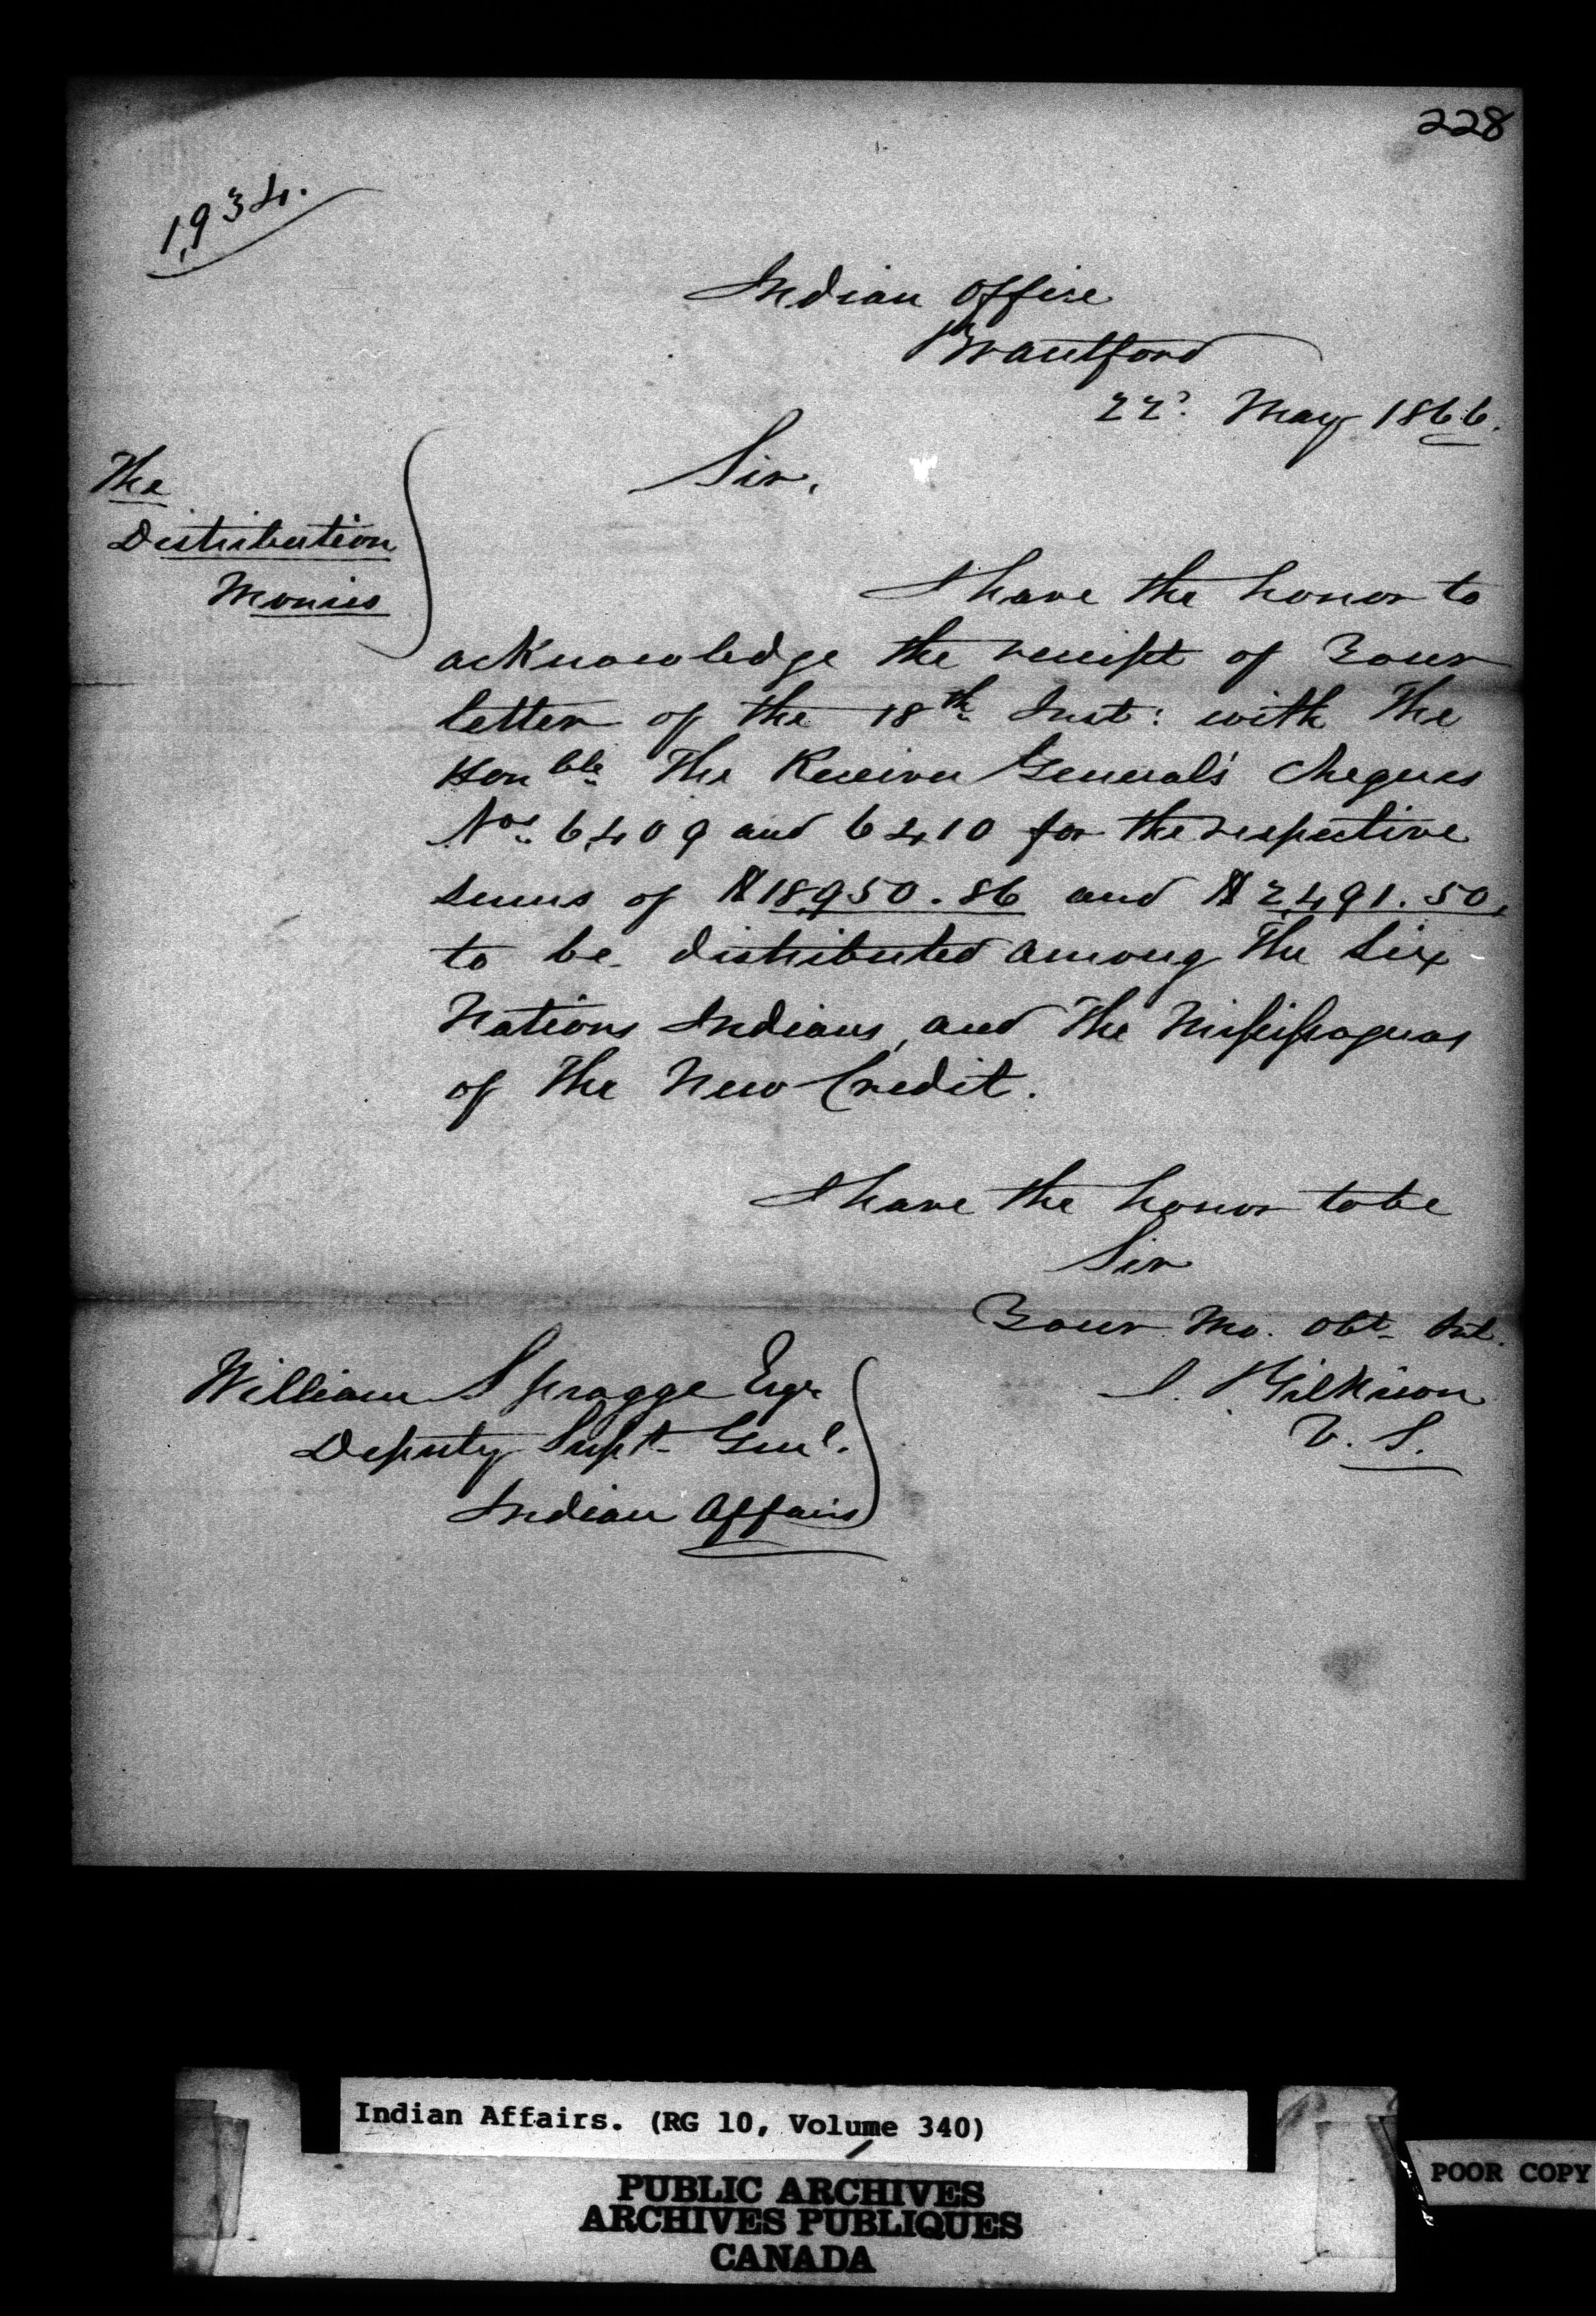 228
1,934.
Indian Office
Brantford
22d. May 1866.
Sir,
The
Distribution
Monies
I have the honor to
acknowledge the receipt of Your
letter of the 18th Inst: with The
Honble The Receiver General's Cheques
Nos 6,409 and 6410 for the respective
sums of $18,950.86 and $2,491.50,
to be distributed among The Six
Nations Indians, and The Missisaguas
of The New Credit.
I have the honor to be
Sir
Your Mo. Obt. Svt.
J. Gilkison
V. S.
William Spragge Esqr
Deputy Supt. Genl.
Indian Affairs
Indian Affairs. (RG 10, Volume 340)
PUBLIC ARCHIVES
ARCHIVES PUBLIQUES
CANADA
POOR COPY